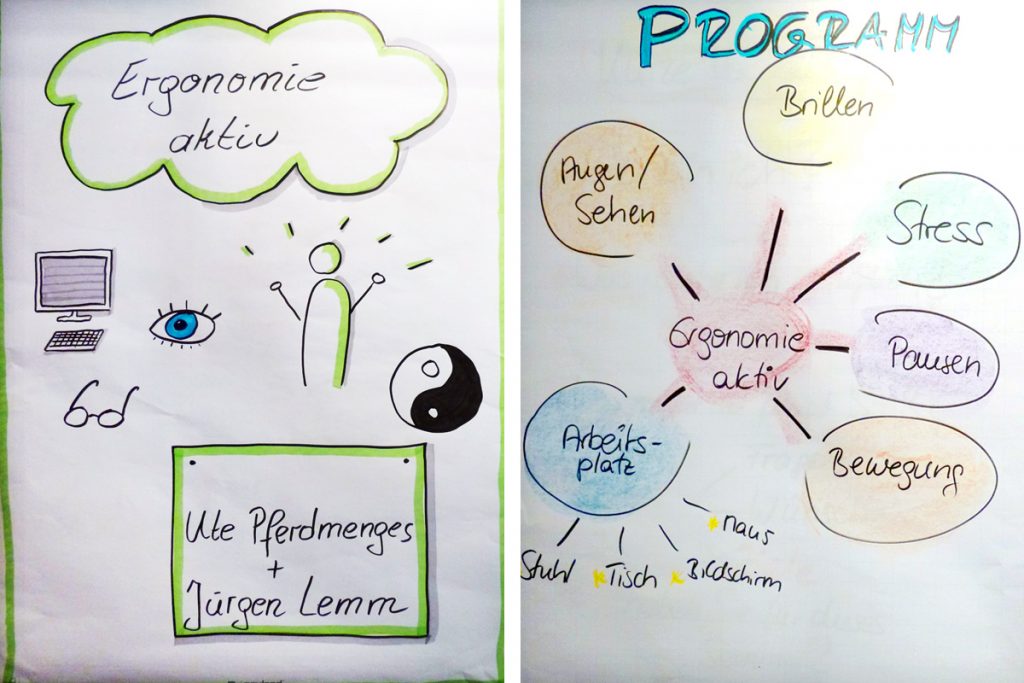 Ergonomie
aktiv
Ute Pferdmenges
+
Jürgen Lemm
PROGRAMM
Brillen
Augen/
Sehen
Stress
Ergonomie
aktiv
Pausen
Arbeits-
platz
Bewegung
Maus
Stuhl
Tisch
Bildschirm